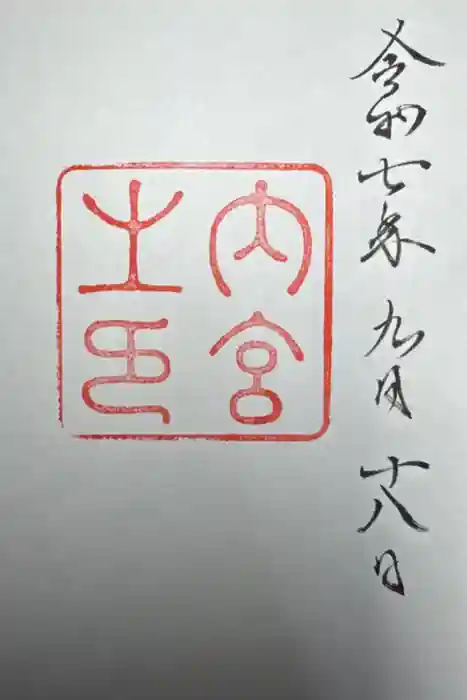 令和七年九月十八日
内宮
之印